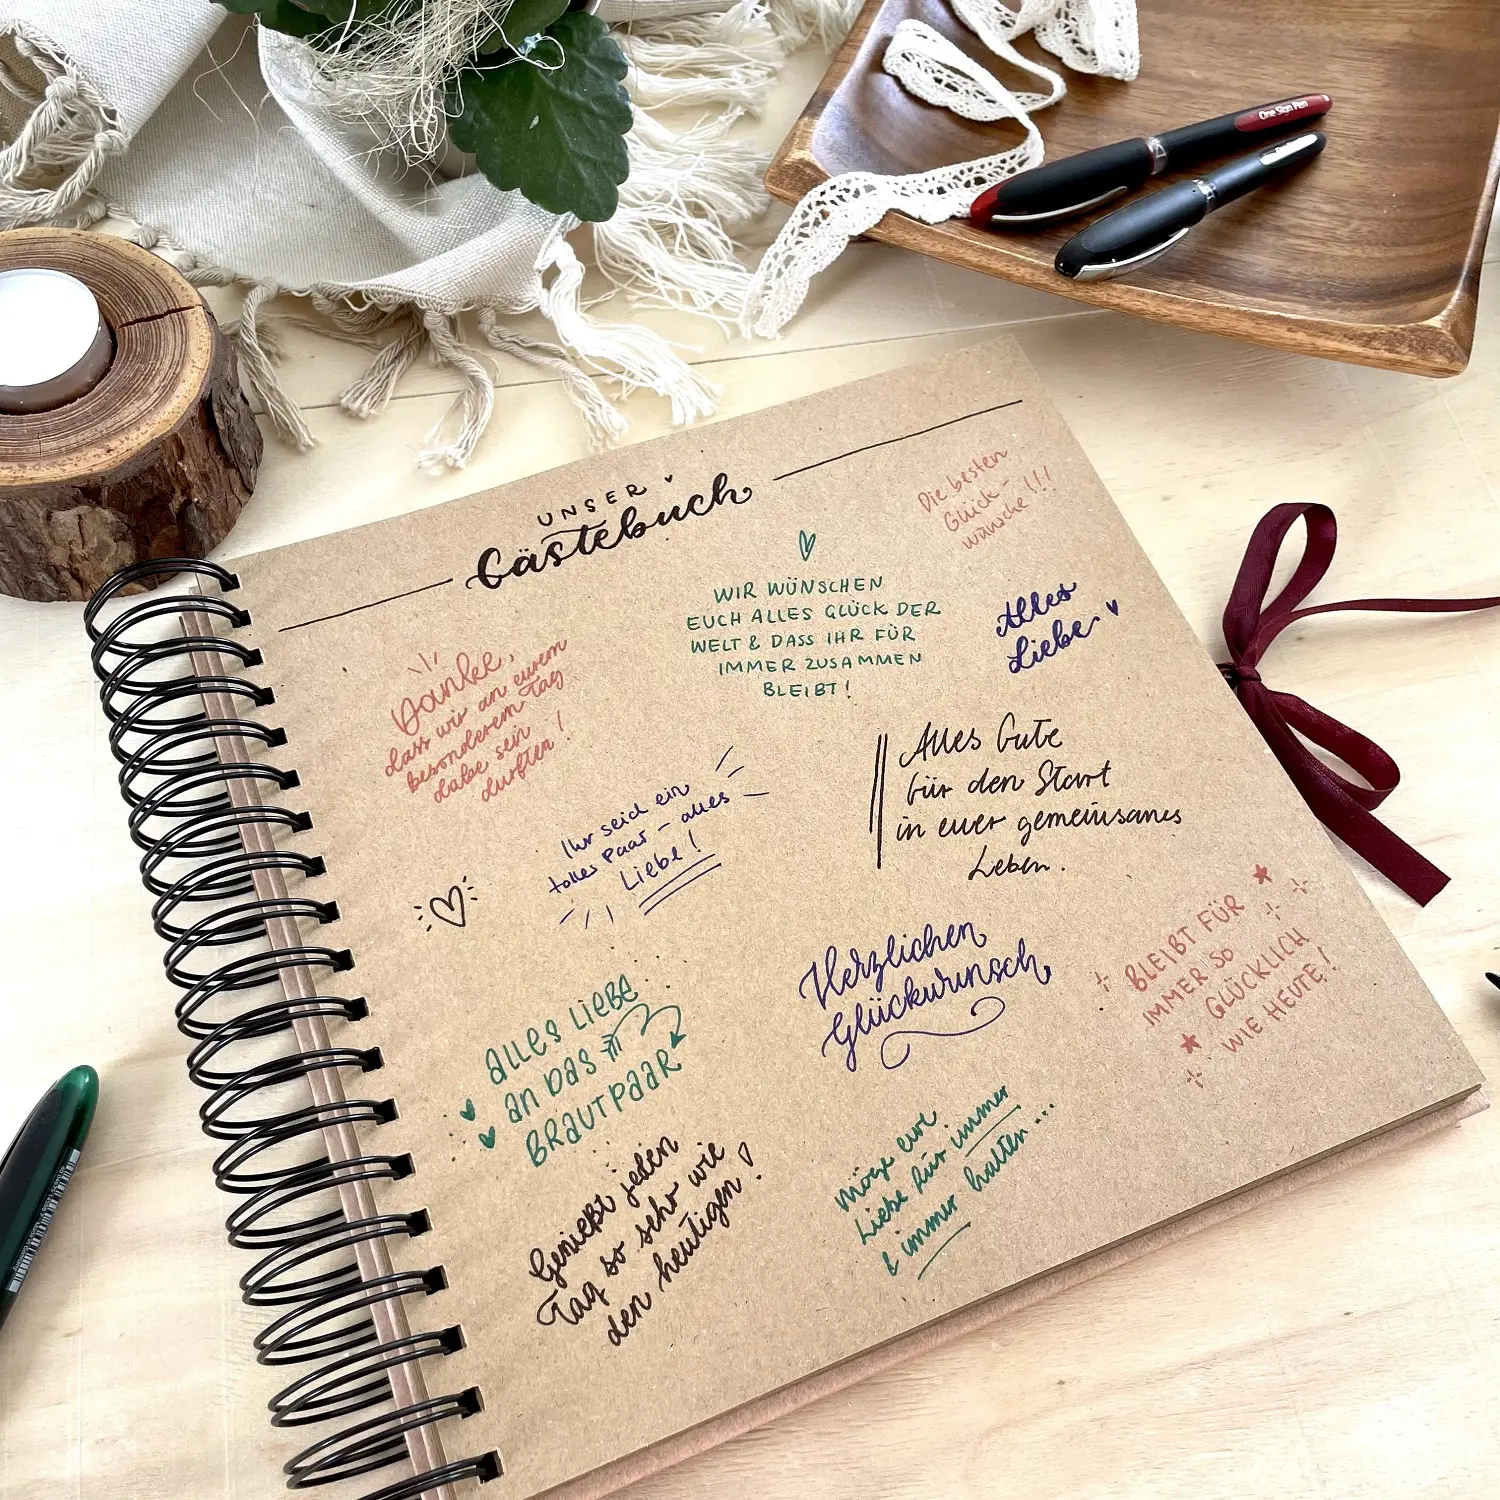 One Sign Pen
UNSER
Gästebuch
Die besten
Glück-
wünsche!!!
WIR WÜNSCHEN
EUCH ALLES GLÜCK DER
WELT & DASS IHR FÜR
IMMER ZUSAMMEN
BLEIBT!
Alles
Liebe
Danke,
dass wir an eurem
besonderem Tag
dabe sein
durften!
Alles Gute
für den Start
in euer gemeinsames
Leben.
Ihr seid ein
tolles Paar - alles
Liebe!
BLEIBT FÜR
IMMER SO
GLÜCKLICH
WIE HEUTE!
Herzlichen
Glückwunsch
ALLES LIEBE
AN DAS
BRAUTPAAR
Möge eure
Liebe für immer
& immer halten ...
Genießt jeden
Tag so sehr wie
den heutigen!